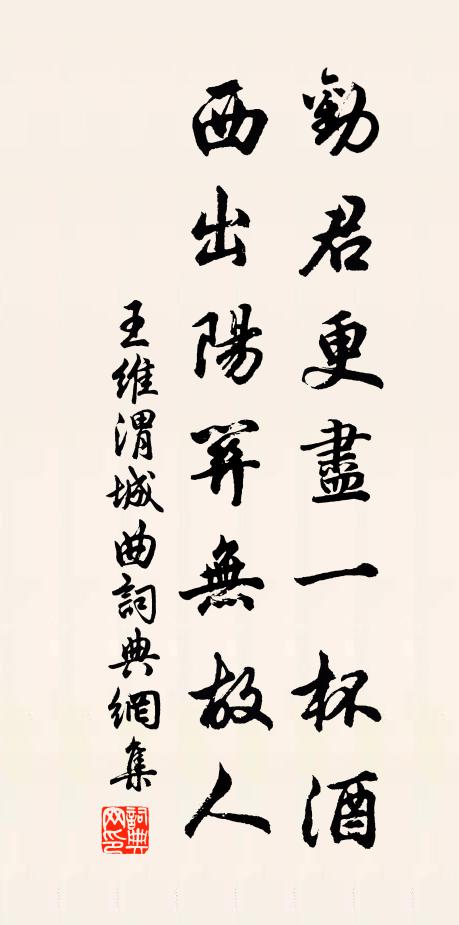 勸君更盡一杯酒
西出陽關無故人
王維渭城曲詞典網集
詞典網印